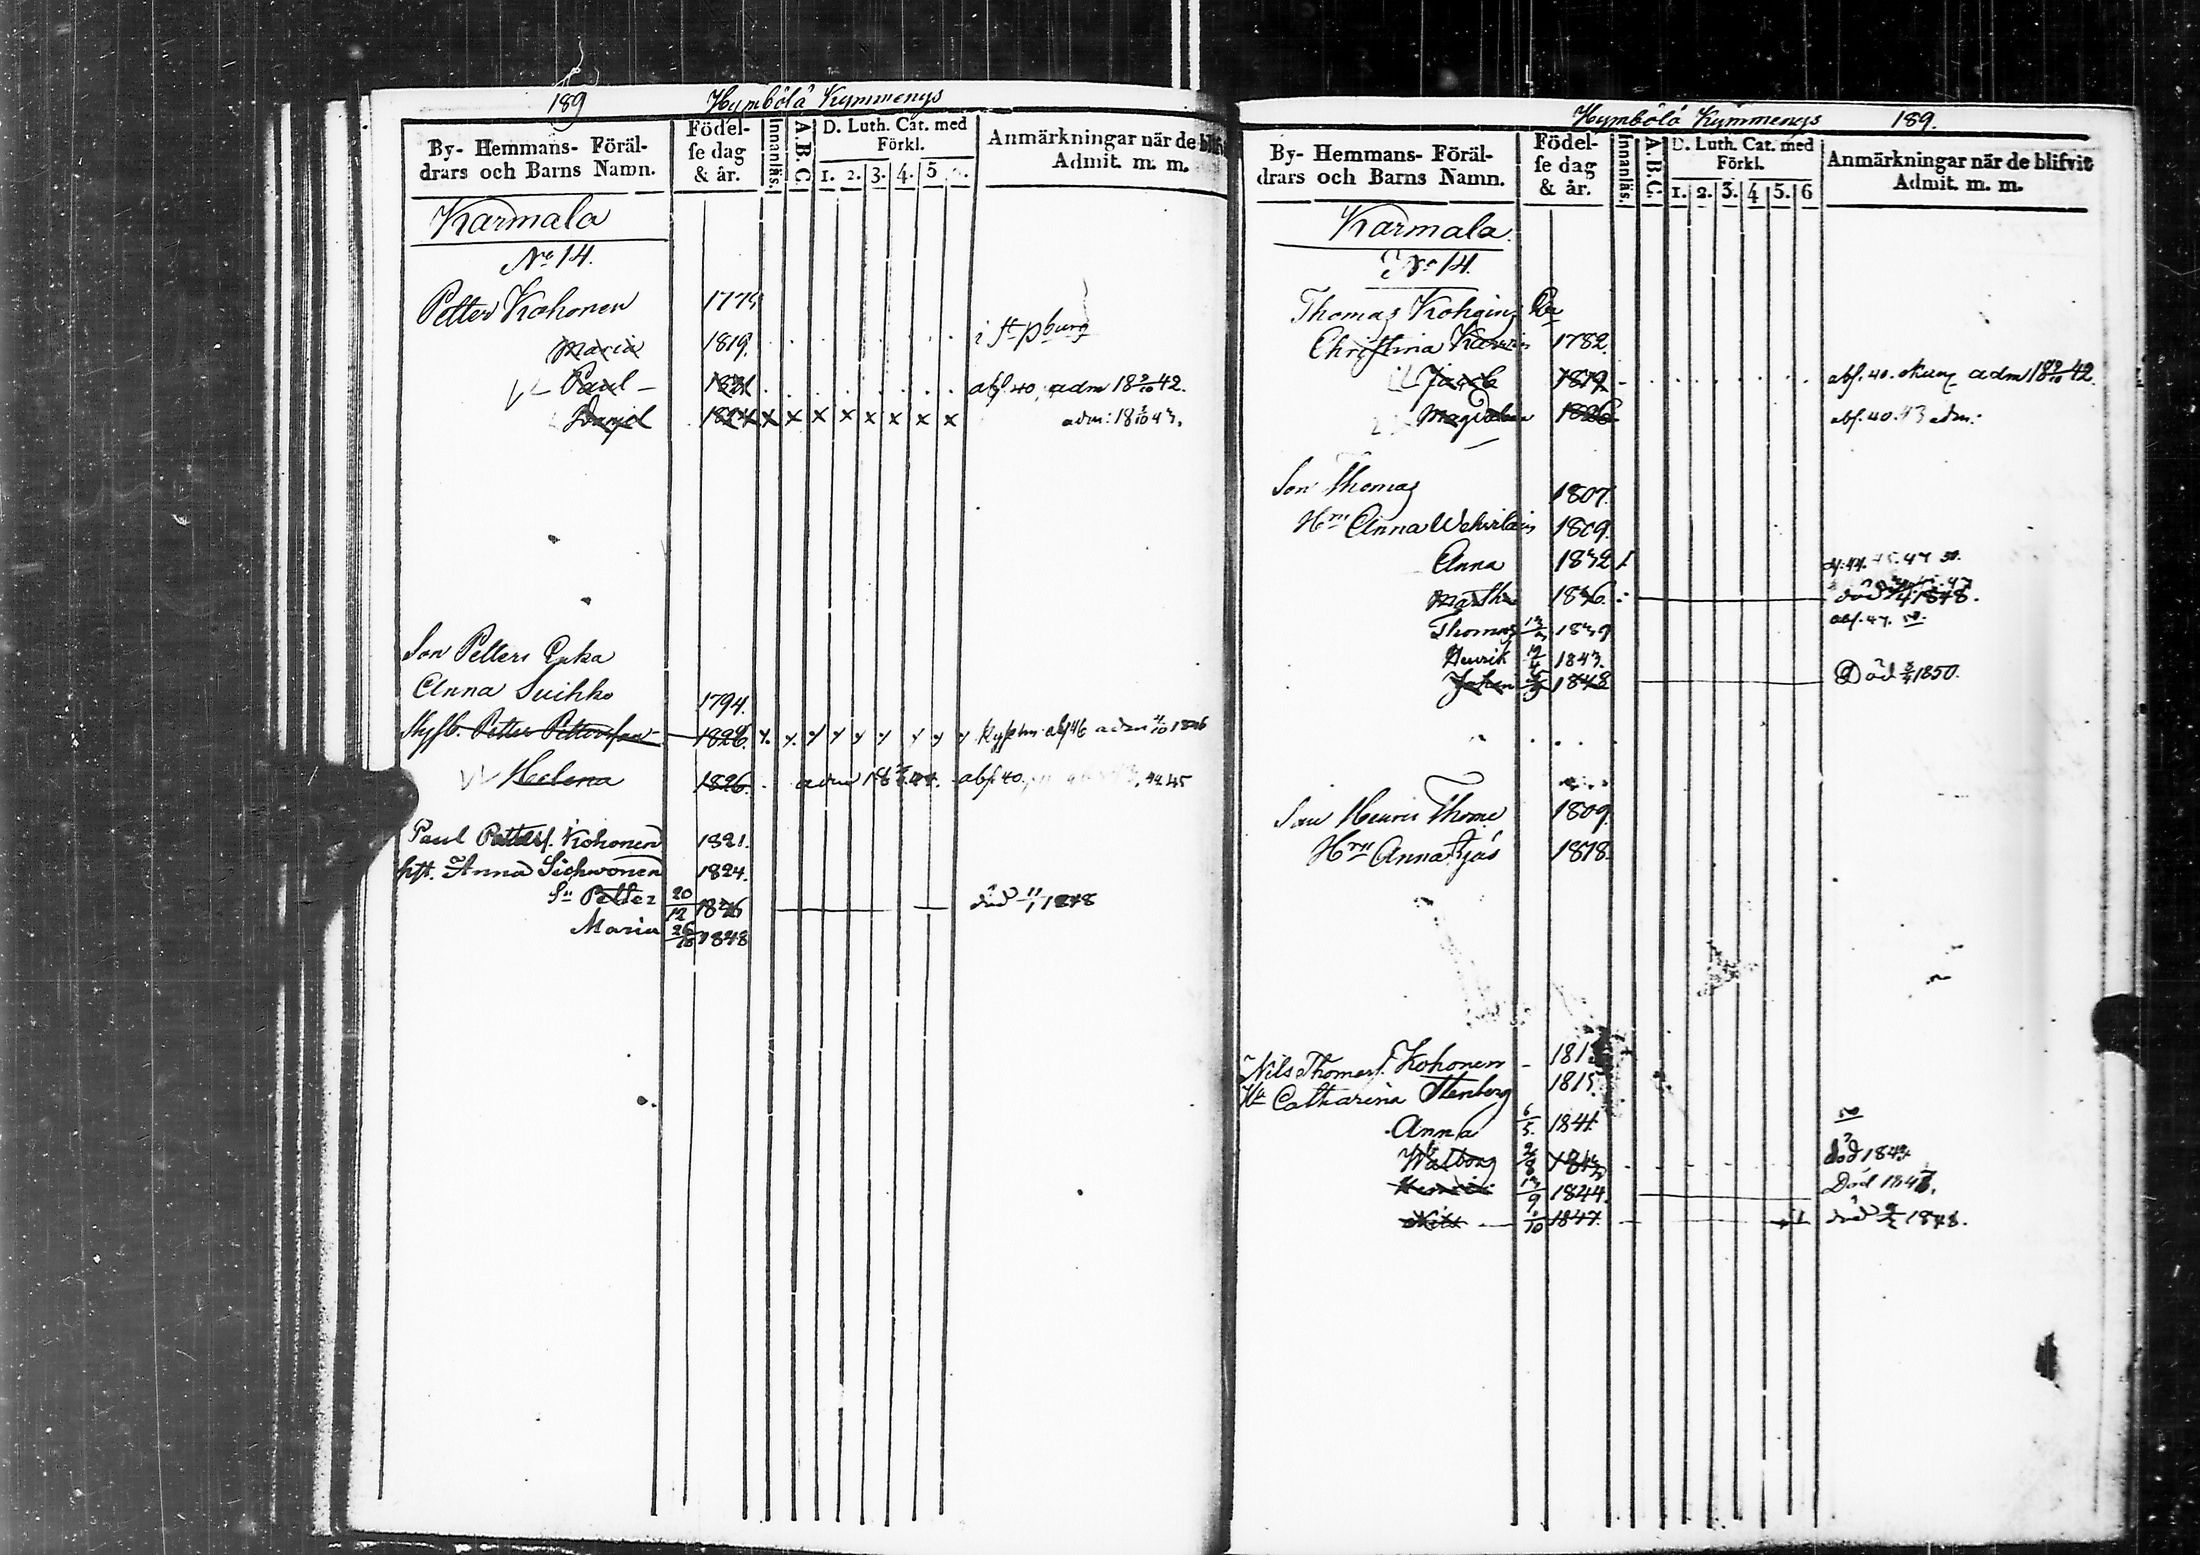 189 Hymbölä Kymmenys
By- Hemmans- Föräl-
drars och Barns Namn.
Födel-
se dag
& år.
Innanläs.
A.B.C.
D. Luth. Cat. med
Förkl.
1. 2. 3. 4. 5
Anmärkningar när de blifv
Admit. m. m.
Karmala
No 14.
Petter Kohonen 177
Maria 1819. i St pburg
Paul 1821 abs. 40, adm 18 9/10 42.
Daniel 1824 x x x x x x x x adm: 18 /10 43.
Son Petters Enka
Anna Suihko 1794.
Styfb. Petter Pettersson 1826. abs 46 adm 1846
Helena 1826. adm 18 44. abs 40. 44 45
Paul Petters. Kohonen 1821.
hst. Anna Sichvonen 1824.
Sn Petter 20/12 1846 död 11/1 1848
Maria 26/10 1848
Hymbölä Kymmenys 189.
By- Hemmans- Föräl-
drars och Barns Namn.
Födel-
se dag
& år.
Innanläs.
A.B.C.
D. Luth. Cat. med
Förkl.
1. 2. 3. 4 5. 6
Anmärkningar när de blifvit
Admit. m. m.
Karmala.
No 14.
Thomas Kohoins
Christina 1782.
Jacob 1819 abs. 40. adm 18 9/10 42.
Magdalena 1826 abs. 40. 43 adm:
Son Thomas 1807.
Hru Anna Wehvilain 1809.
Anna 1832 44. 45. 47
Martha 1836. död 1848.
Thomas 1839 abs. 47.
Henrik 1843.
Johan 1848 Död 1850.
Son Henric Thome 1809.
Hru Anna Kjäs 1818.
Nils Thomas. Kohonen 181
Hu Catharina Stenberg 1815.
Anna 6/5. 1841.
Walborg död 184
Henric 1844. Död 184
Nils 1847. död 1848.